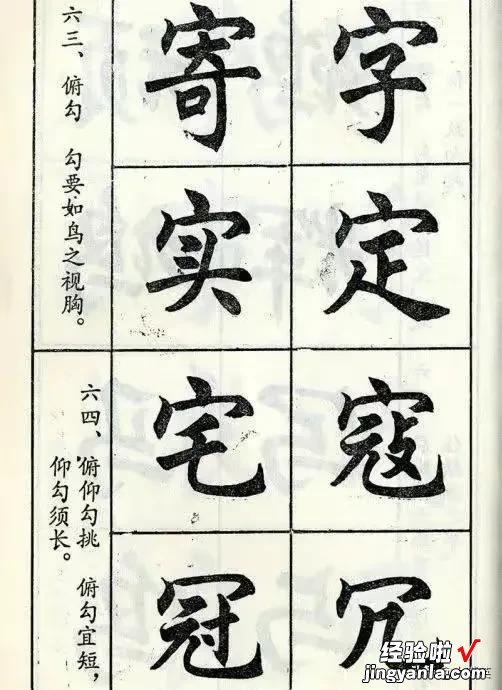 字定寇冗
寄实宅冠
六三、俯勾 勾要如鸟之视胸。
六四、俯仰勾挑 俯勾宜短，
仰勾须长。
经验啦√
jingyanla.com